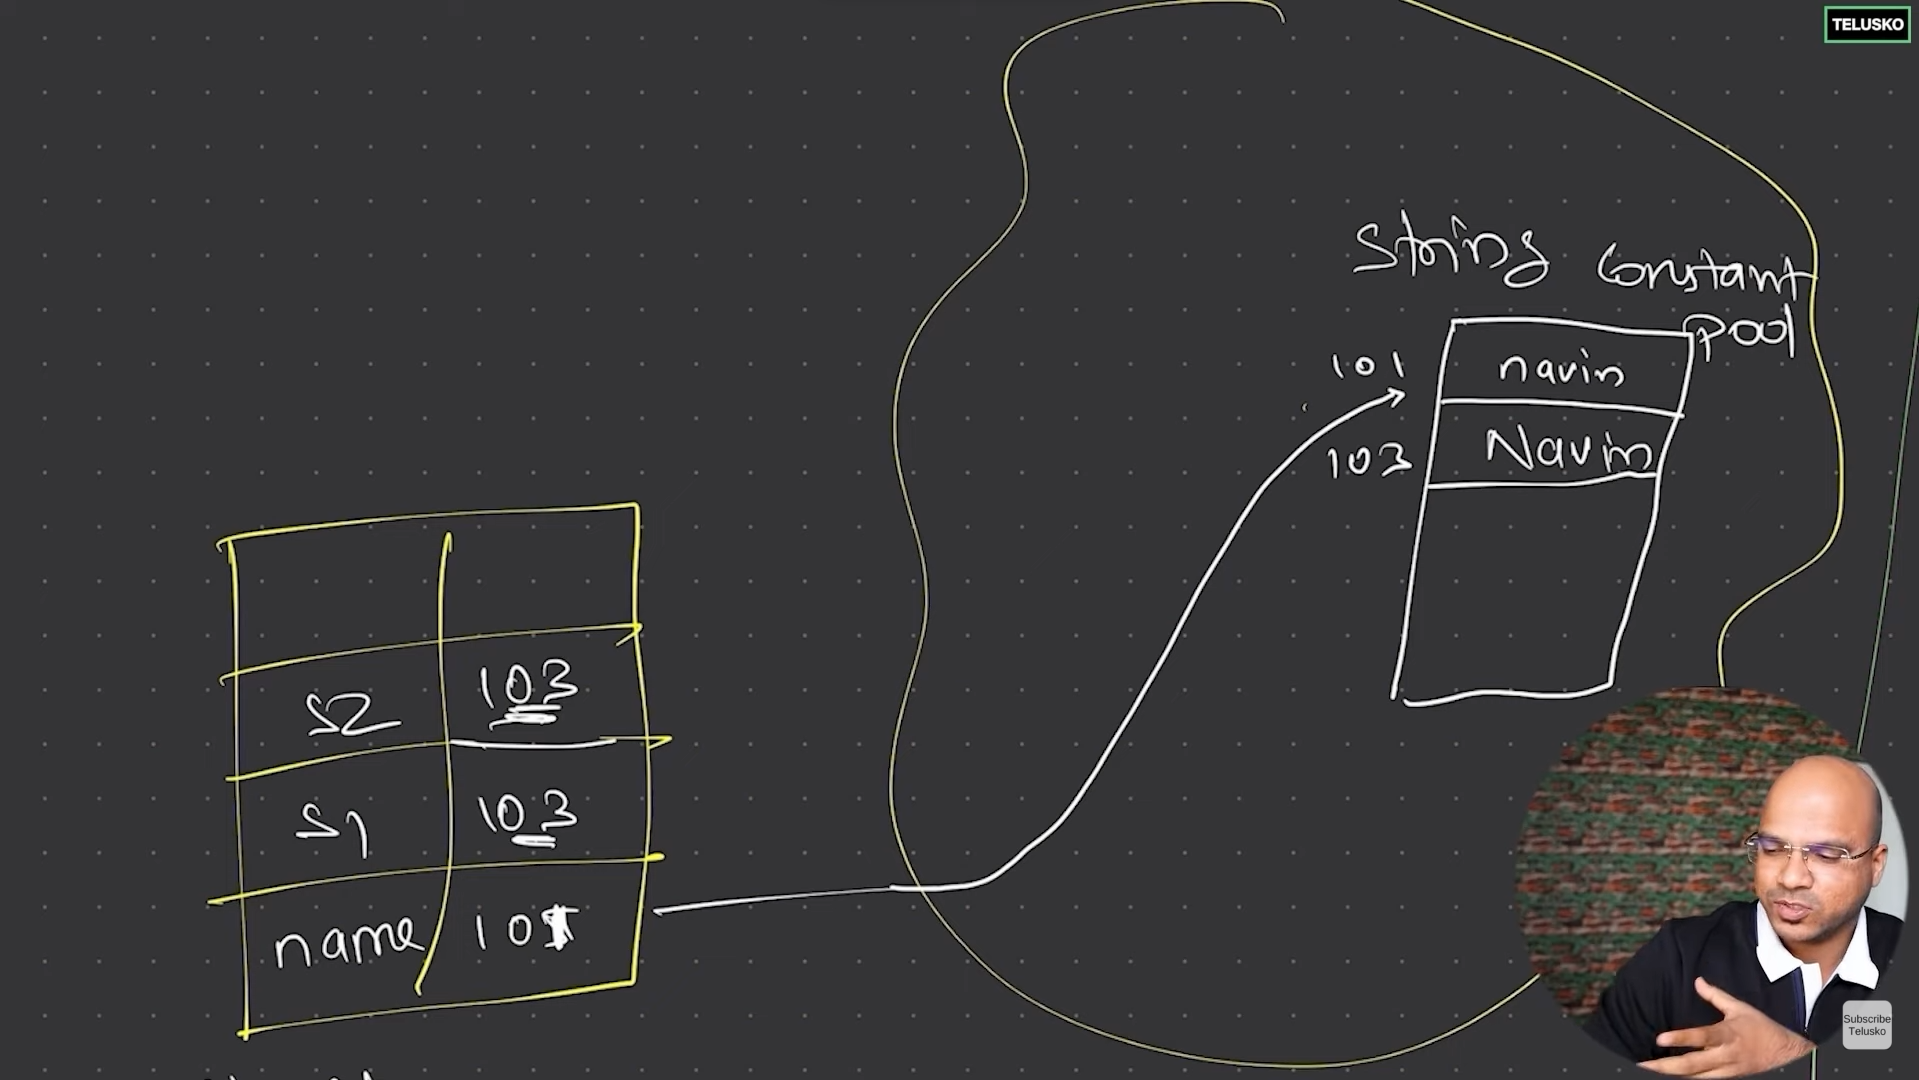 TELUSKO
String Constant
Pool
101 navin
103 Navin
S2 103
S1 103
name 101
Subscribe
Telusko